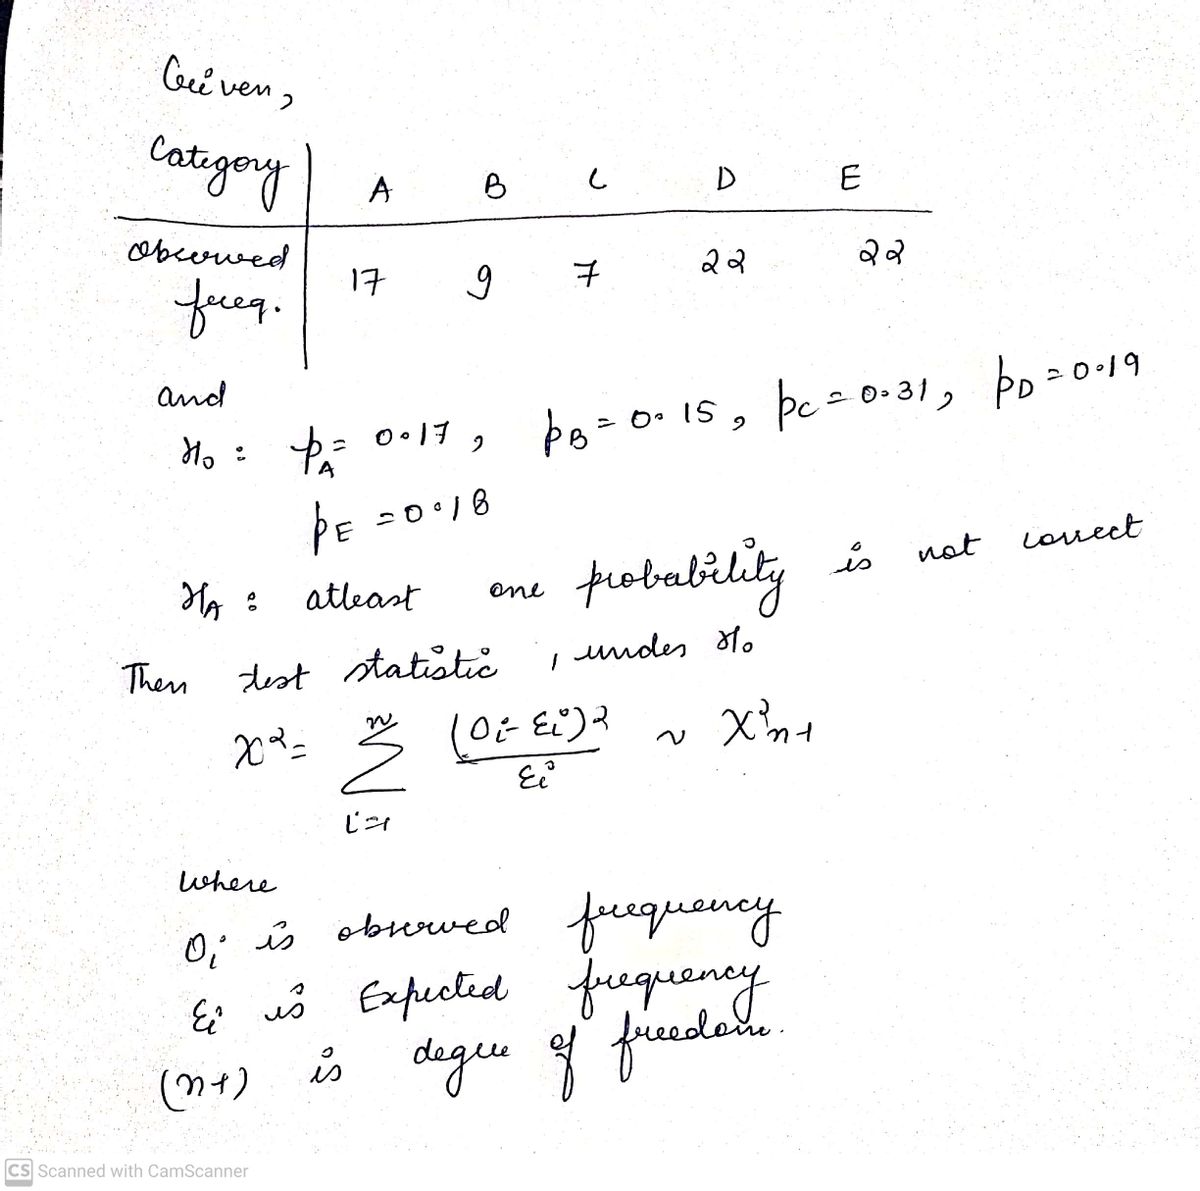 Given,
Category | A B C D E
observed freq. | 17 9 7 22 22
and
H₀ : p_A = 0.17, p_B = 0.15, p_C = 0.31, p_D = 0.19
p_E = 0.18
H_A : atleast one probability is not correct
Then test statistic, under H₀
χ² = Σ_{i=1}^{n} (O_i - E_i)² / E_i ~ χ²_{n-1}
where
O_i is observed frequency
E_i is Expected frequency
(n-1) is degree of freedom.
CS Scanned with CamScanner